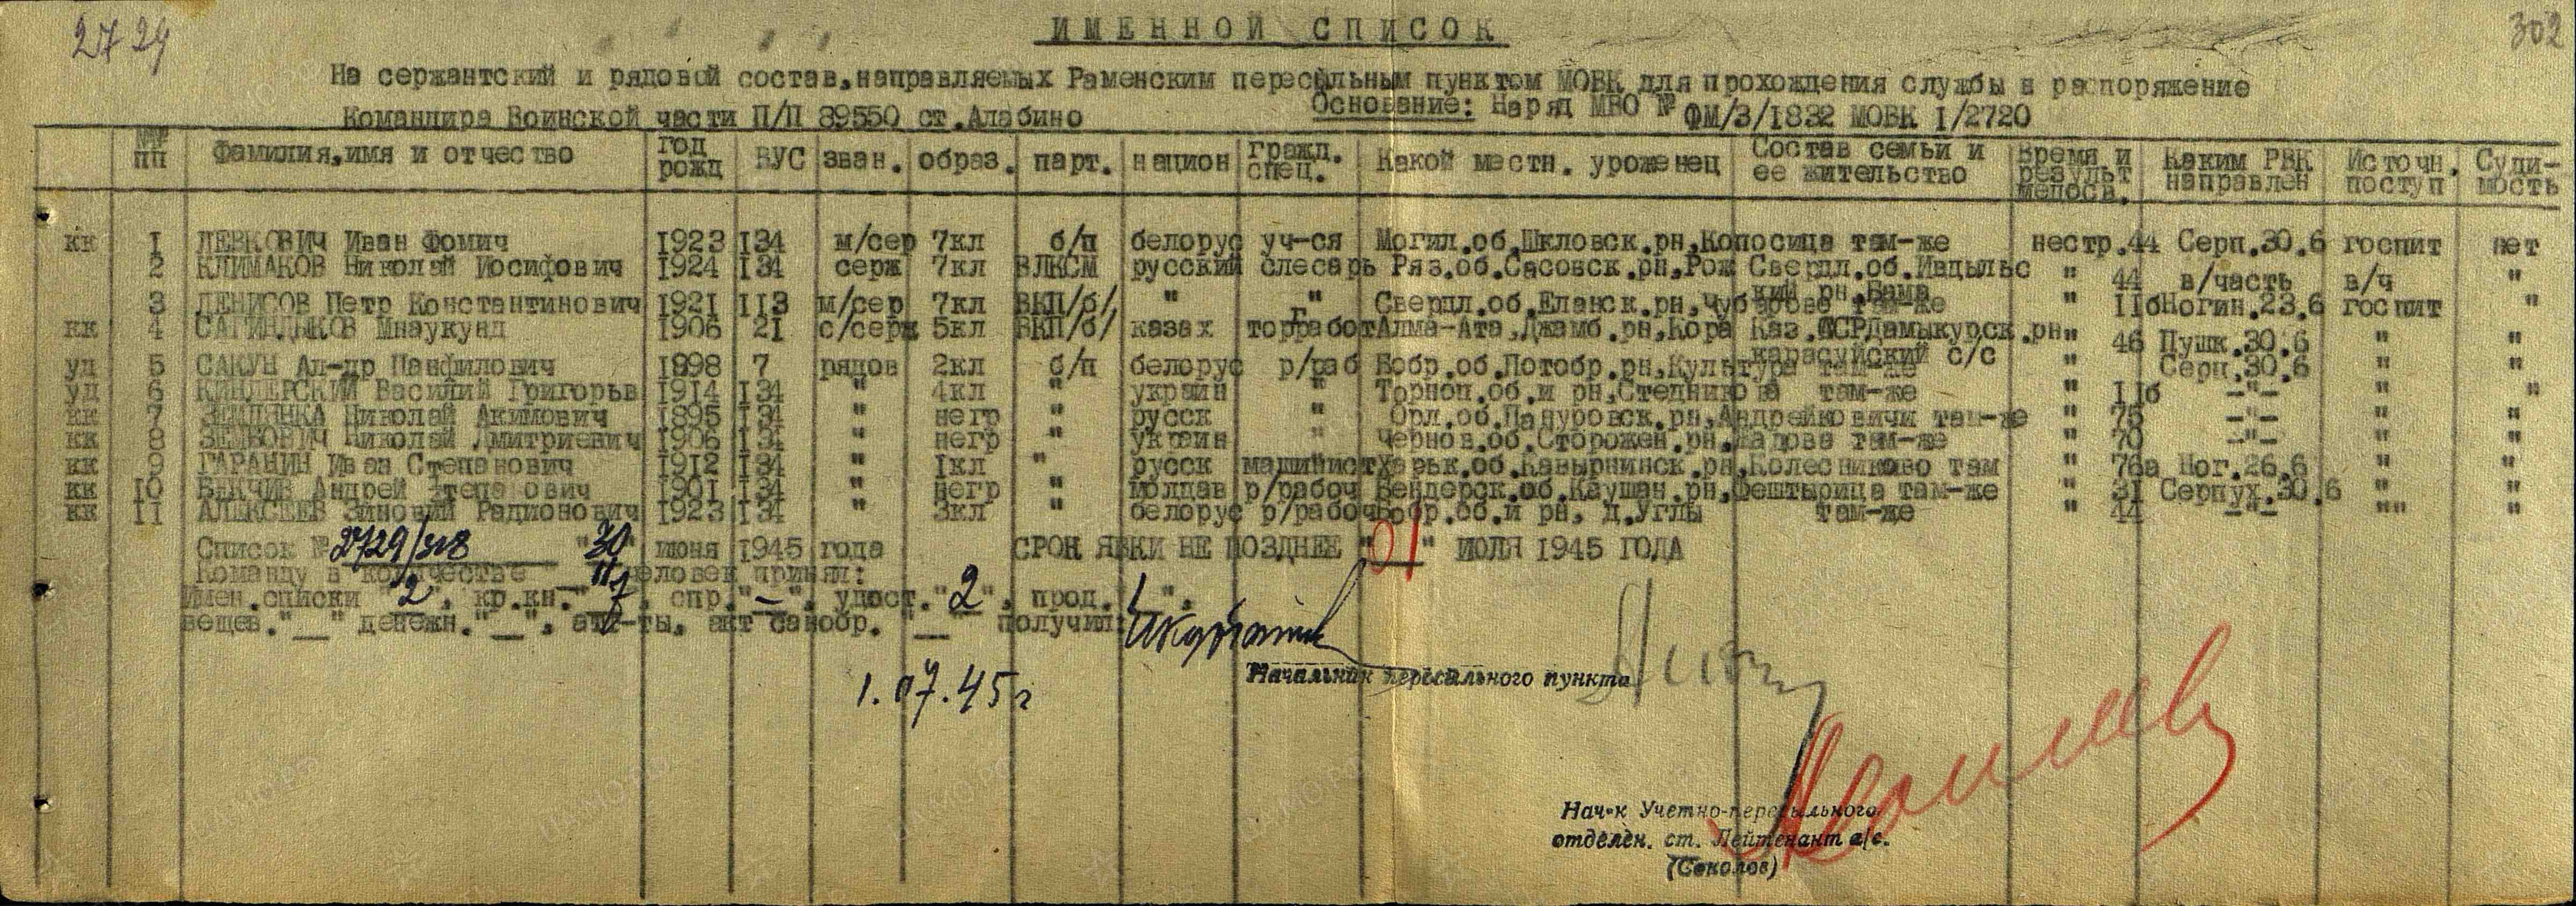 2729
302
ИМЕННОЙ СПИСОК
На сержантский и рядовой состав, направляемых Раменским пересыльным пунктом МОВК для прохождения службы в распоряжение
Командира Воинской части П/П 89550 ст.Алабино Основание: Наряд МВО № ФМ/3/1832 МОВК 1/2720
№№ пп Фамилия,имя и отчество год рожд ВУС зван. образ. парт. национ гражд. спец. Какой местн. уроженец Состав семьи и ее жительство Время и результ медосв. Каким РВК направлен Источн. поступ Суди-мость
кк 1 ЛЕВКОВИЧ Иван Фомич 1923 134 м/сер 7кл б/п белорус уч-ся Могил.об.Шкловск.рн,Копосица там-же нестр.44 Серп.30.6 госпит нет
2 КЛИМАКОВ Николай Иосифович 1924 134 серж 7кл ВЛКСМ русский слесарь Ряз.об.Сасовск.рн,Рож Свердл.об.Ивдыльс кий рн,Бама " 44 в/часть в/ч "
3 ДЕНИСОВ Петр Константинович 1921 113 м/сер 7кл ВКП/б/ " " Свердл.об.Еланск.рн,Чубарово там-же " 11б Ногин.23.6 госпит "
кк 4 САГИНДЫКОВ Мнаукунд 1906 21 с/серж 5кл ВКП/б/ казах торработ Алма-Ата,Джамб.рн,Кора Каз.ССР Дамыкурск.рн карасуйский с/с " 46 Пушк.30.6 " "
уд 5 САКУН Ал-др Панфилович 1898 7 рядов 2кл б/п белорус р/раб Бобр.об.Потобр.рн,Культура там-же " Серп.30.6 "
уд 6 КИНДЕРСКИЙ Василий Григорьв 1914 134 " 4кл " украин " Торноп.об.и рн,Стедникова там-же " 11б -"- " "
кк 7 ЗЕМЛЯНКА Николай Акимович 1895 134 " негр " русск " Орл.об.Понуровск.рн,Андрейковичи там-же " 75 -"- " "
кк 8 ЗЕЛЬОВИЧ Николай Дмитриевич 1906 134 " негр " украин " Чернов.об.Сторожен.рн,Жадова там-же " 70 -"- " "
кк 9 ГАРАНИН Иван Степанович 1912 134 " 1кл " русск машинист Харьк.об.Кавырнинск.рн,Колесниково там " 76а Ног.26.6 " "
кк 10 ВЕКЧИВ Андрей Степа ович 1901 134 " негр " молдав р/рабоч Бендерск.об.Каушан.рн,Фештырица там-же " 31 Серпух.30.6 " "
кк 11 АЛЕКСЕЕВ Зиновий Радионович 1923 134 " 3кл " белорус р/рабоч Бобр.об.и рн, д.Углы там-же " 44 -"- "" "
Список № 2729/318 "30" июня 1945 года СРОК ЯВКИ НЕ ПОЗДНЕЕ "01" ИЮЛЯ 1945 ГОДА
Команду в количестве 11 человек принял:
Имен.списки "2", кр.кн."7", спр."–", удост."2", прод."1",
вещев."__" денежн."__", атт-ты, акт санобр. "__" получил:
Начальник пересыльного пункта
1.07.45г
Нач-к Учетно-пересыльного
отделен. ст. Лейтенант а/с.
(Соколов)